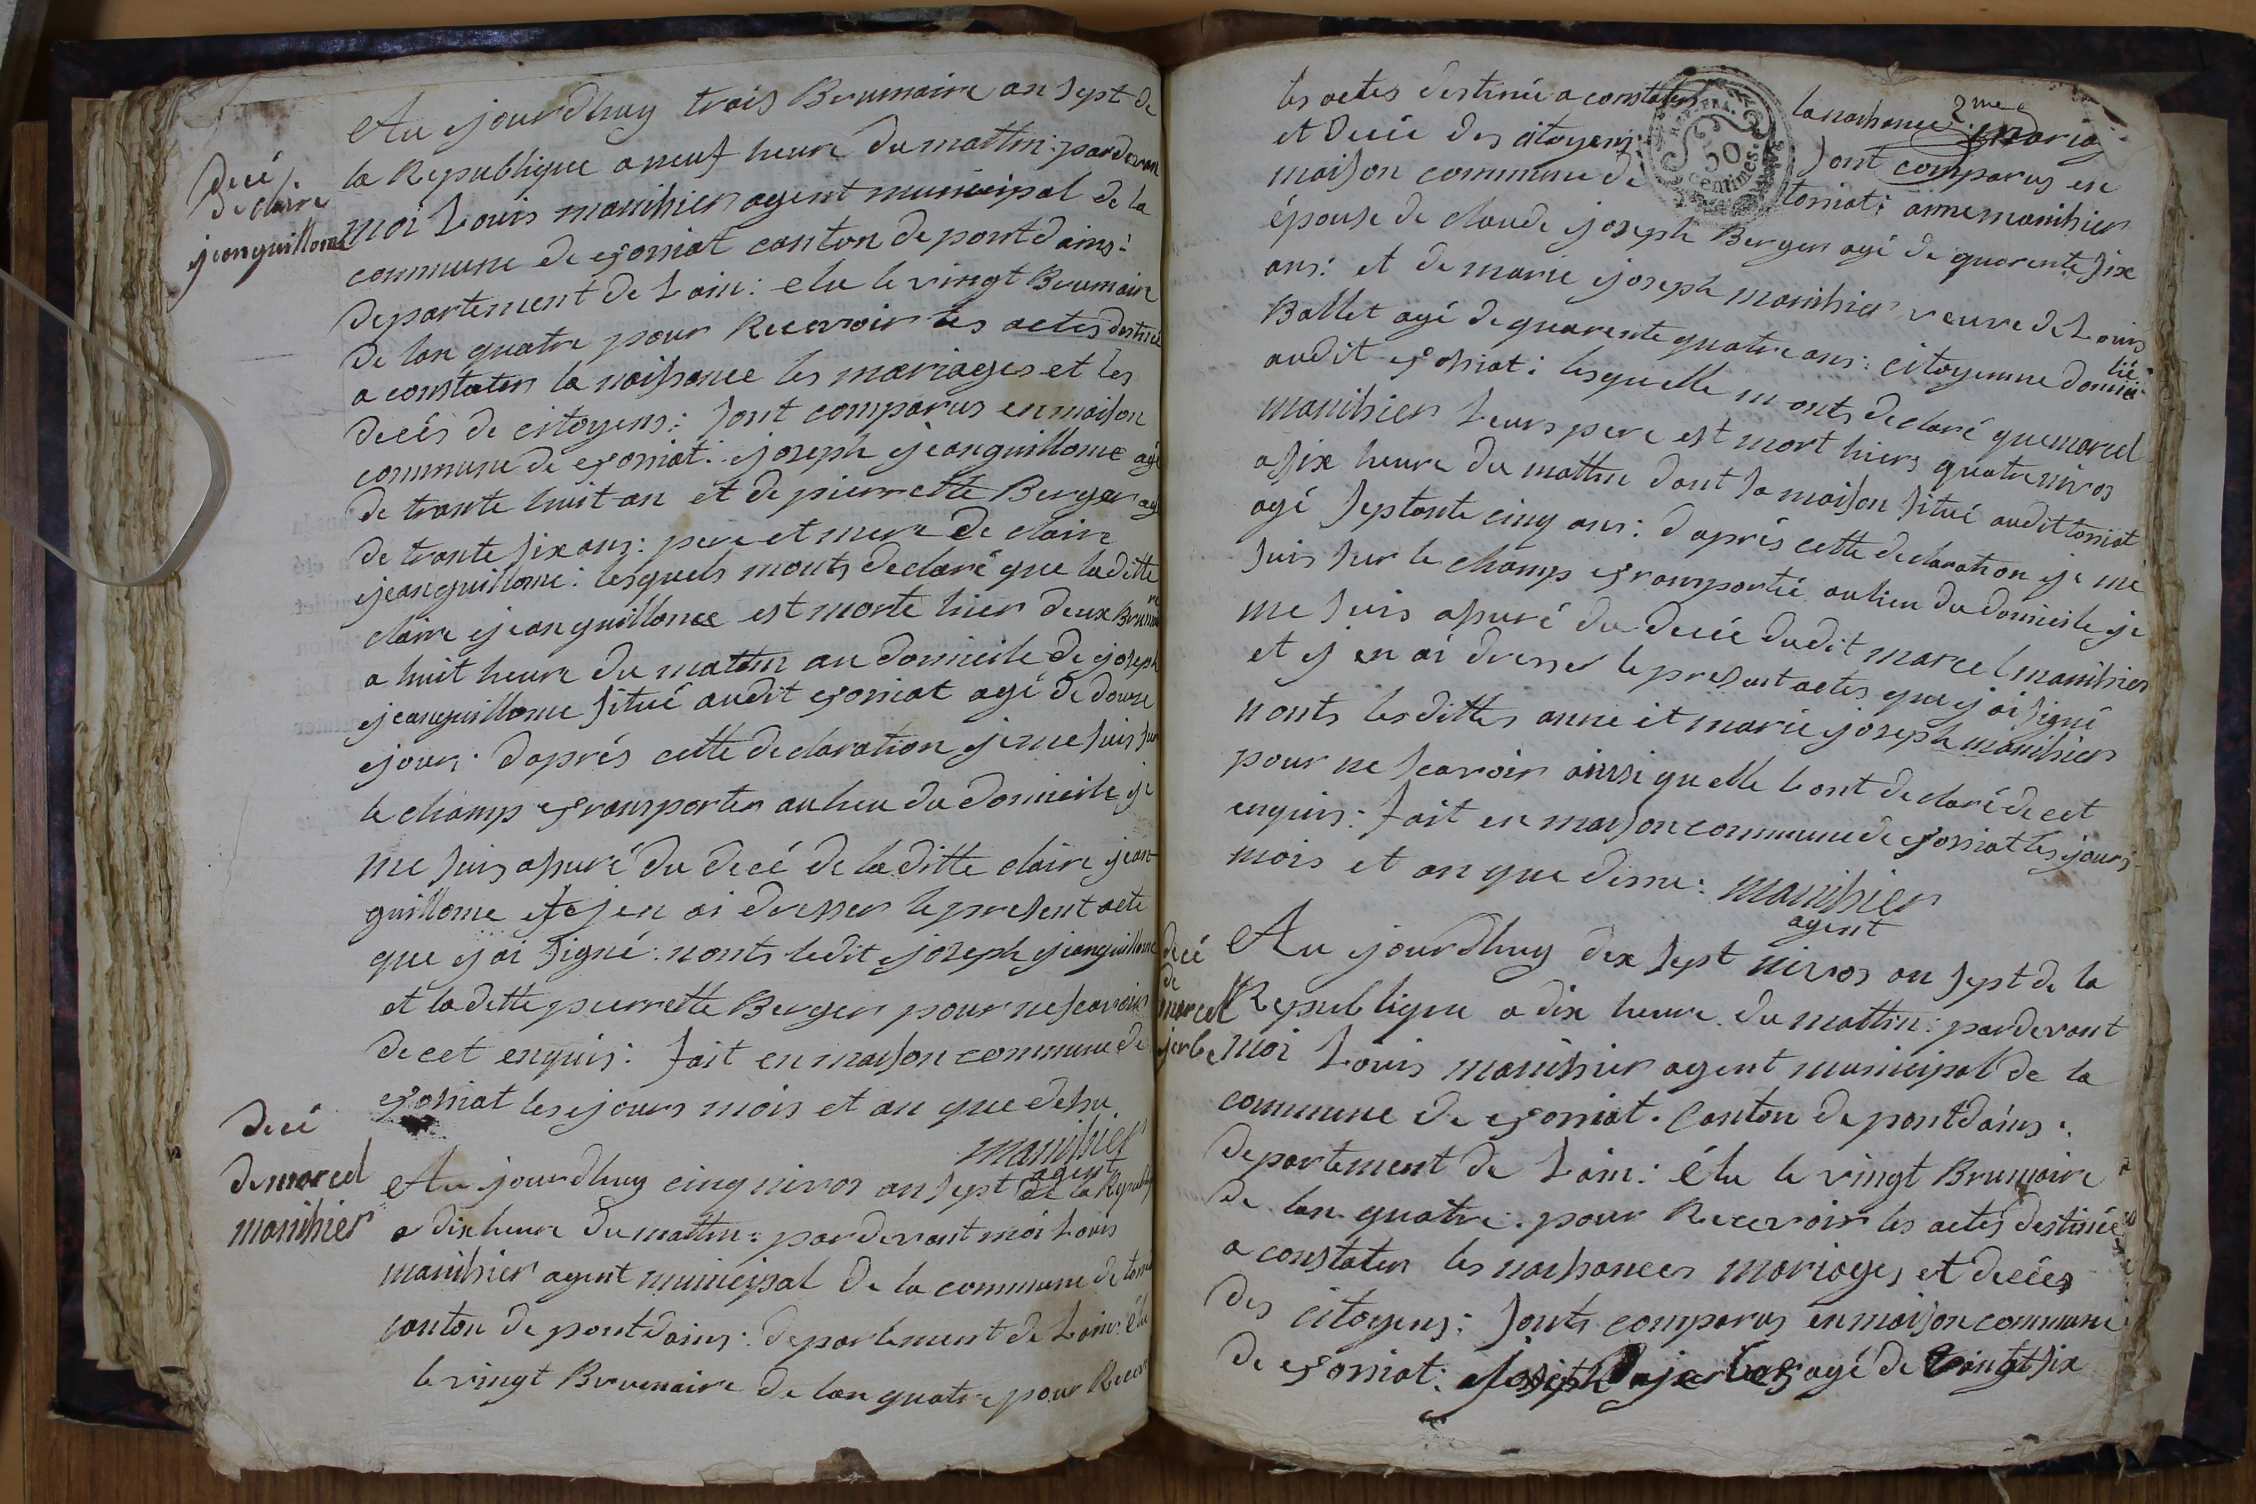 decé
de claire
jeanguillome
Au jourdhuy trois Brumaire an sept de
la Republique a neuf heure du mattin: pardevan
moi Louis manihier agent municipal de la
commune de tossiat canton de pontdains:
departement de Lain: elu le vingt Brumaire
de lan quatre pour Recevoir les actes destinée
a constater la naissance les mariages et les
decés de citoyens: sont comparus en maison
commune de tossiat: joseph jeanguillome agé
de trante huit an et de pierrette Berger agé
de trante six ans: pere et mere de claire
jeanguillome: lesquels monts declaré que laditte
claire jeanguillomee est morte hier deux Brumaire
a huit heure du mattin au domicile de joseph
jeanguillome situé audit tossiat agé de douze
jours: daprés cette declaration je me suis sur
le champ transporter au lieu du domicile je
me suis assuré du decé de laditte claire jean
guillome et jen ai dresser le present acte
que jai signé: nonts ledit joseph jeanguillome
et laditte pierrette Berger pour ne scavoir
de cet enquis: fait en maison commune de
tossiat les jours mois et an que dessu
manihier
agent
decé
de marcel
manihier
Au jourdhuy cinq nivos an sept de la Republi
a dix heure du mattin: pardevant moi Louis
manihier agent municipal de la commune de toss
canton de pontdains: departement de Lain: élu
le vingt Brumaire de lan quatre pour Recev
les actes destinée a constater la naissance mariag
2me
et decée des citoyens: sont comparus en
maison commune de tossiat: anne manihier
épouse de claude joseph Berger agé de quarente six
ans: et de marie joseph manihier veuve de Louis
Ballet agé de quarente quatre ans: citoyenne domici
lié
audit tossiat: lesquelle monts declaré que marcel
manihier leurs pere est mort hiers quatre nivos
a six heure du mattin dant sa maison situé audit tossiat
agé septante cinq ans: daprés cette declaration je me
suis sur le champ transportée au lieu du domicile je
me suis assuré du decée dudit marcel manihier
et j en ai dresser le present actes que jai signé
nonts les dittes anne et marie joseph manihier
pour ne scavoir ainsi quelle lont declaré de cet
enquis: fait en maison commune de tossiat les jours
mois et an que dessu: manihier
agent
decé
de
marcel
jerbe
Au jourdhuy dix sept nivos an sept de la
Republique a dix heure du mattin: pardevant
moi Louis manihier agent municipal de la
commune de tossiat. canton de pontdains:
departement de Lain: élu le vingt Brumaire
de lan quatre: pour Recevoir les actes destinée
a constater les naissances mariages et decées
des citoyens: sonts comparus en maison commune
de tossiat: joseph agé de vingt six
REP. FRA.
50
centimes.